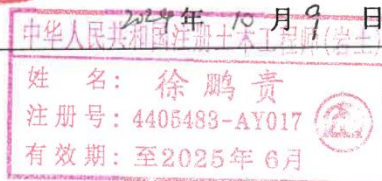 2024年 10 月 9 日
中华人民共和国注册土木工程师(岩土)
姓 名：徐鹏贵
注册号：4405483-AY017
有效期：至2025年 6月